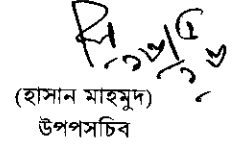 (হাসান মাহমুদ)
উপপসচিব